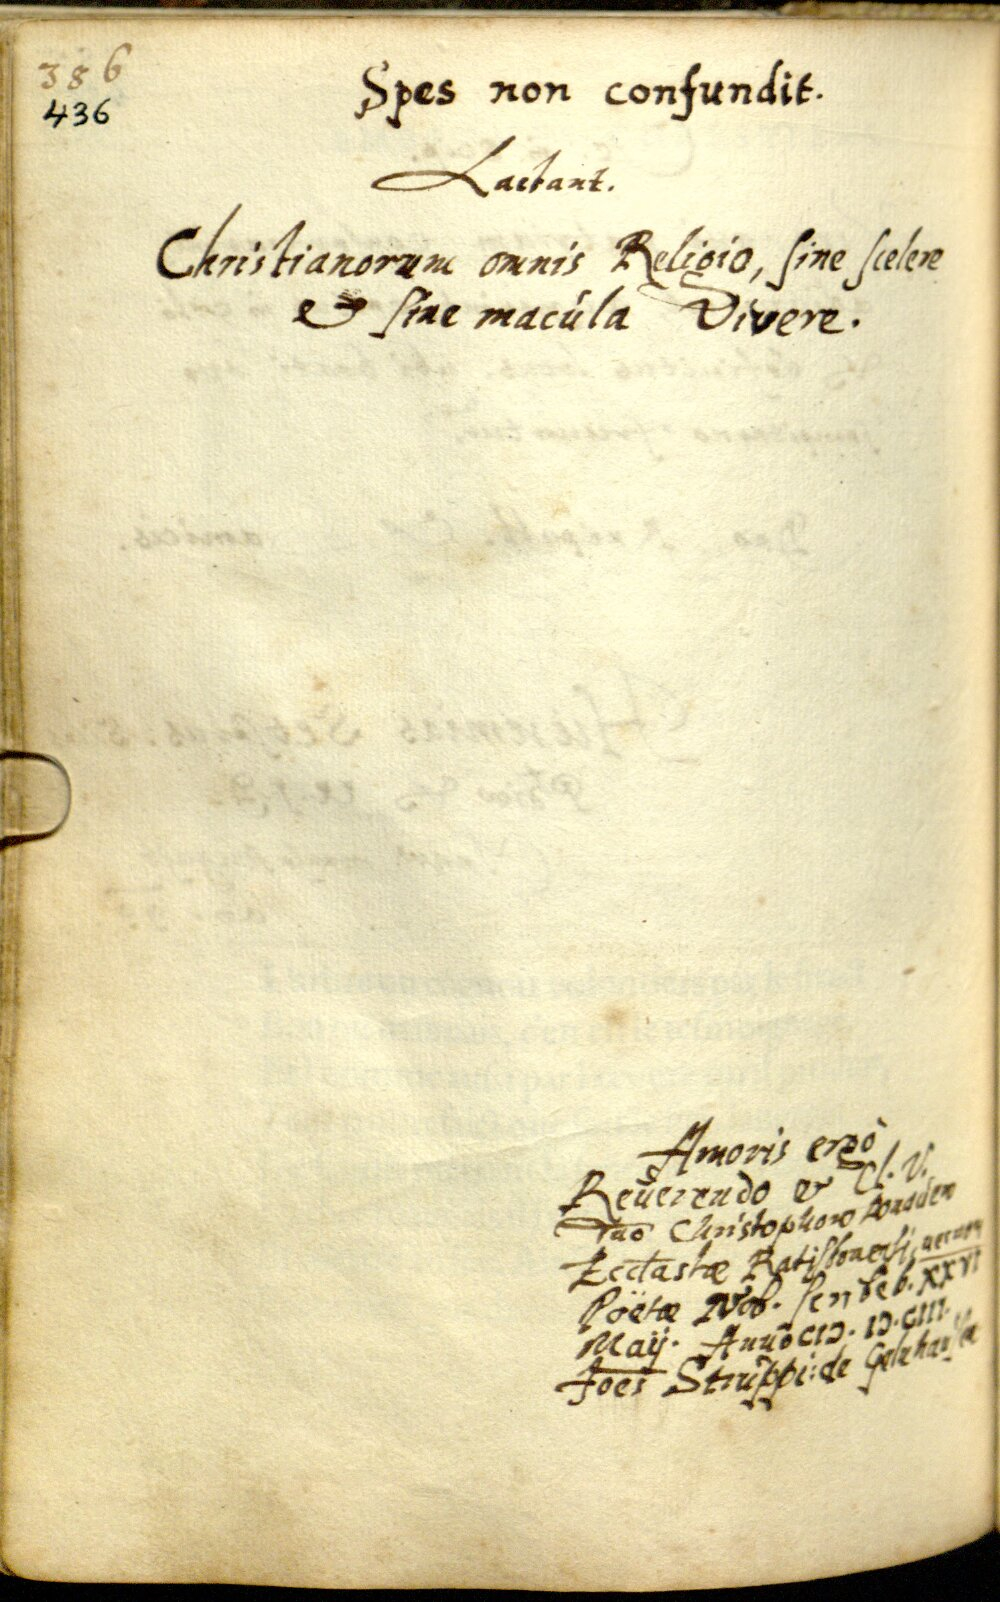 386
436
Spes non confundit.
Lactant.
Christianorum omnis Religio, sine scelere
& sine macula Vivere.
Amoris ergò
Reuerendo & Cl. V.
Dnō Christophoro Donauero
Ecclastæ Ratisbonensi,
Poëtæ Nob. scribeb. XXVI
Maij. Anno CIƆ. IƆ. CIII.
Joēs Struppi: de Gelnhausen